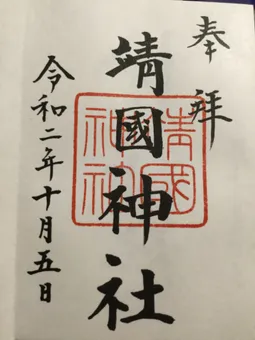 奉拜
靖國神社
令和二年十月五日
靖國
神社